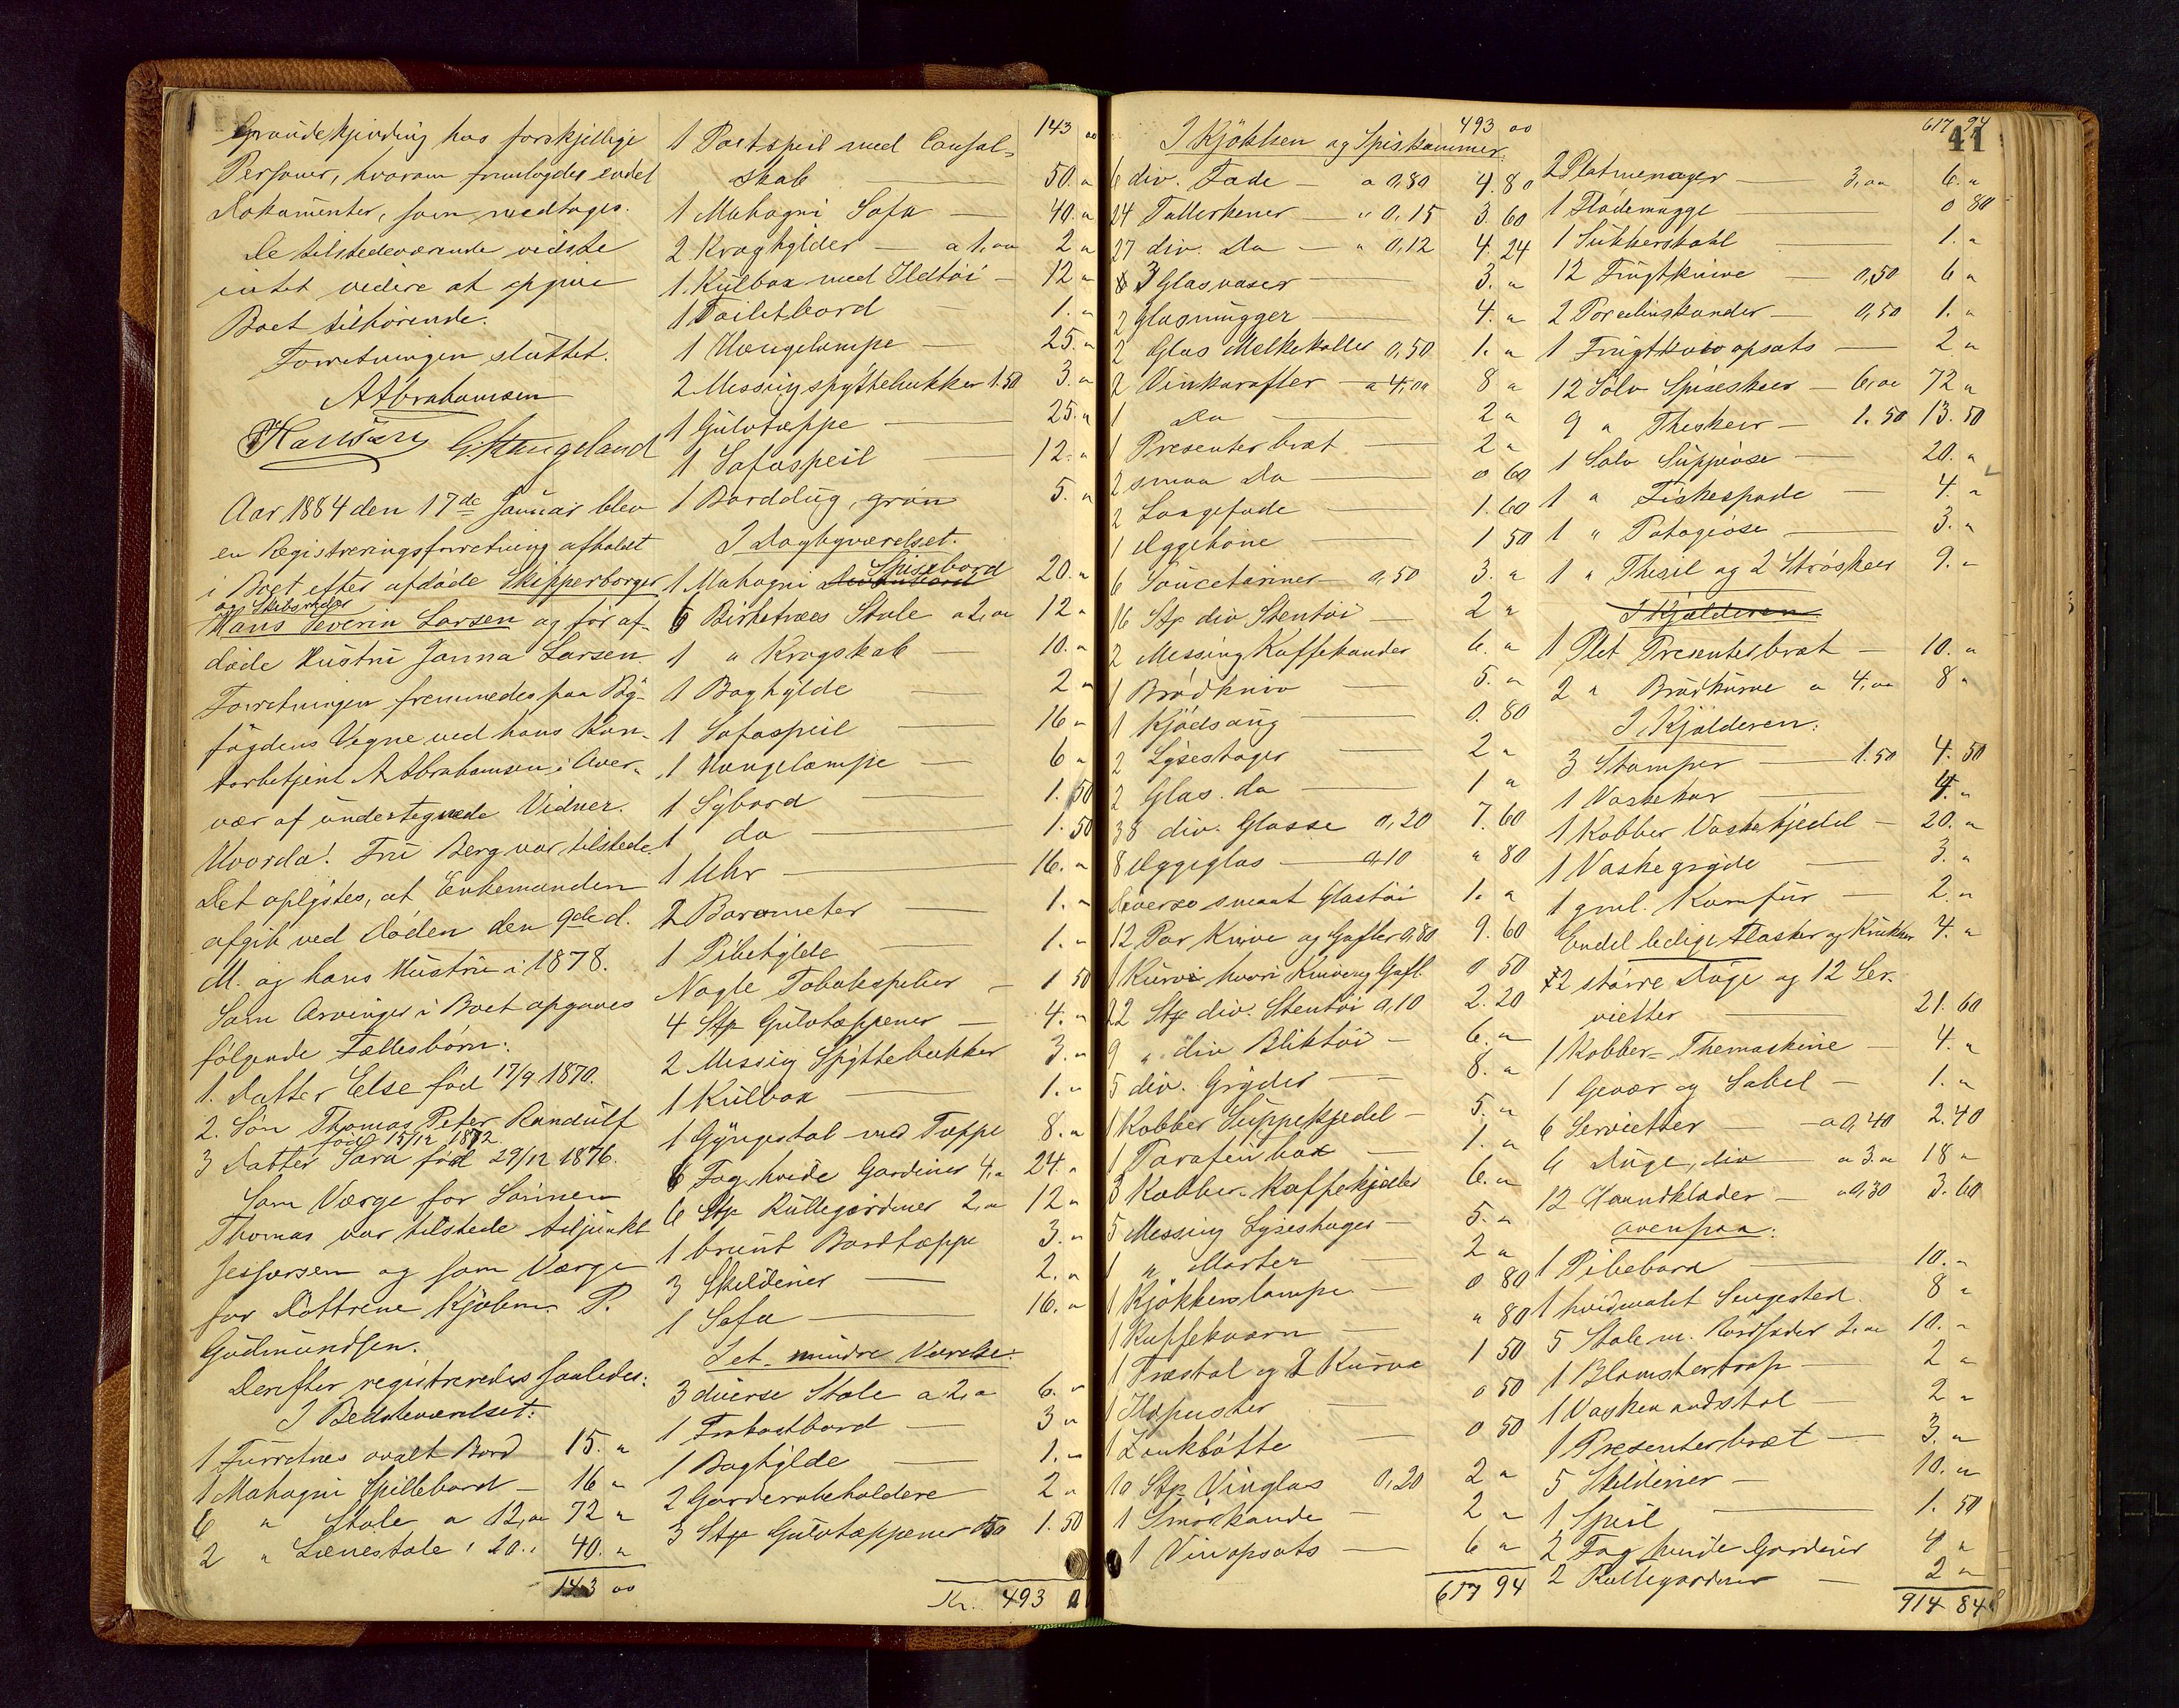 hos forskjellige
Personer, hvorom fremlagdes endel
Dokumenter, som medtages.
De tilstedeværende vidste
intet videre at opgive
Boet tilhørende.
Forretningen sluttet.
A Abrahamsen
Hansen G. Haugeland
Aar 1884 den 17de Januar blev
en Registreringsforretning afholdt
i Boet efter afdøde Skipperborger
og Skibsreder
Hans Severin Larsen og før af-
døde Hustru Janna Larsen.
Forretningen fremmedes paa By-
fogdens Vegne ved hans Kon-
torbetjent A Abrahamsen i Over-
vær af undertegnede Vidner.
Hvorda: Fru Berg var tilstede.
Det oplystes, at Enkemanden
afgik ved Døden den 9de d.
M. og hans Hustru i 1878.
Som Arvinger i Boet opgaves
følgende Fællesbørn:
1. Datter Else fød 17/9 1870.
2. Søn Thomas Peter Randulf
fød 15/12 1872.
3 Datter Sara fød 29/12 1876.
Som Værge for Sønnen
Thomas var tilstede Adjunkt
Jespersen og som Værge
for Døttrene Kjøbm. P.
Gudmundsen.
Derefter registreredes saaledes:
I Bedsteværelset:
1 Furretræs ovalt Bord 15. "
1 Mahogni Spillebord - 16 "
6 " Stole a 12,00 72 "
2 " Lænestole " 20. " 40. "
143 00
143 00
1 Postspeil med Consol-
skab 50. "
1 Mahogni Sofa 40. "
2 Kroghylder a 1,00 2 "
1 Kulbox med Ildtøi - 12 "
1 Toiletbord 1. "
1 Hængelampe 25. "
2 Messing spyttebakker 1.50 3. "
1 Gulvtæppe 25. "
1 Sofaspeil 12. "
1 Borddug, grøn 5. "
I Dagligværelset.
Spisebord
1 Mahogni 20. "
6 Birketræes Stole a 2,00 12 "
1 " Krogskab 10. "
1 Boghylde 2 "
1 Sofaspeil 16 "
1 Hængelampe 6 "
1 Sybord 1. 50
1 do 1. 50
1 Uhr 16. "
2 Barometer 1. "
1 Pibehylde 1. "
Nogle Tobakspiber 1 50
4 Stk Gulvtæppener 4. "
2 Messing Spyttebakker 3. "
1 Kulbox 1. "
1 Gyngestol med Tæppe 8. "
6 Fag hvide Gardiner 4, " 24. "
6 Stk Rullegardiner 2, " 12 "
1 brunt Bordtæppe 3. "
3 Skilderier 2. "
1 Sofa 16. "
I et mindre Værelse:
3 diverse Stole a 2, " 6. "
1 Frokostbord 3 "
1 Boghylde 1. "
2 Garderobeholdere 2 "
3 Stk Gulvtæppener 1. 50
Kr. 493
493 00
I Kjøkken og Spiskammer.
6 div. Fade a 0,80 4. 80
24 Tallerkener " 0,15 3. 60
27 div. Do " 0,12 4. 24
3 Glasvaser 3. "
2 Glasmugger 4. "
2 Glas Melkekoller 0,50 1. "
2 Vinkarafler a 4,00 8 "
1 Do 2 "
1 Presenterbræt 2 "
2 smaa Do 0 60
2 Langefade 1. 60
1 Æggehøne 1 50
6 Soucetariner 0,50 3. "
16 Stk div Stentøi 2 "
2 Messing Kaffekander 6. "
1 Brødkniv 5. "
1 Kjødsaug 0. 80
2 Lysestager 2 "
2 Glas. do 1 "
38 div. Glasse 0,20 7. 60
8 Æggeglas 0,10 " 80
Diverse smaat Glastøi 1. "
12 Par Knive og Gafler 0,80 9. 60
1 Kurv hvori Kniv og Gafl. 0 50
22 Stk div. Stentøi 0,10 2. 20
9 " div Bliktøi - 6. "
5 div. Gryder 8. "
1 Kobber Suppekjedel - 5. "
1 Parafin box 1. "
3 Kobber Kaffekjedler 6. "
5 Messing Lysestager 5. "
1 " Morter 2 "
1 Kjøkkenlampe 0 80
1 Kaffekværn " 80
1 Træstol og 2 Kurve 1 50
1 Ildpuster 0 50
1 Zinkbøtte 0 50
10 Stk Vinglas 0,20 2 "
1 Smørkande 2 "
1 Vinopsats 6 "
617 94
617 94
41
2 Platmenager 3,00 6. "
1 Flødemugge 0 80
1 Sukkerskaal 1. "
12 Frugtknive 0,50 6 "
2 Porcelinskander 0,50 1. "
1 Frugt opsats 2 "
12 Sølv Spiseskeer 6,00 72 "
9 " Theskeer 1.50 13. 50
1 Sølv Suppeøse 20. "
1 " Fiskespade 4. "
1 " Potageøse 3. "
1 " Thesil og 2 Strøskeer 9. "
I Kjælderen
1 Plet Presenterbræt 10. "
2 " Brødkurve a 4,00 8 "
I Kjælderen:
3 Stamper 1.50 4. 50
1 Vaskekar 4. "
1 Kobber Vaskekjedel 20. "
1 Vaskegryde 3. "
1 gml. Komfur 2. "
Endel ledige Flasker og Krukker 4. "
2 større Duge og 12 Ser-
vietter 21. 60
1 Kobber-Themaskine 4. "
1 Gevær og Sabel 1. "
6 Servietter a 0,40 2. 40
6 Duge, div a 3. " 18 "
12 Haandklæder a 0,30 3. 60
ovenpaa:
1 Pibebord 10. "
1 hvidmalet Sengested 8 "
5 Stole m. 2,00 10. "
1 Blomstertrap 2 "
1 Vaskevandstol 2 "
1 Presenterbræt 3, "
5 Skilderier 10. "
1 Speil 1. 50
2 Fag hvide Gardiner 4 "
2 Rullegardiner 2 "
914 84